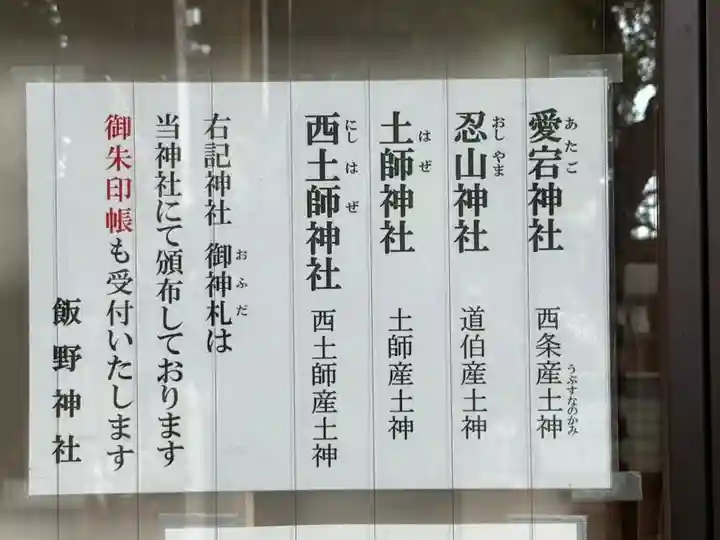 愛宕神社 西条産土神
あたご
うぶすなのかみ
忍山神社 道伯産土神
おしやま
土師神社 土師産土神
はぜ
西土師神社 西土師産土神
にしはぜ
右記神社 御神札は
おふだ
当神社にて頒布しております
御朱印帳も受付いたします
飯野神社